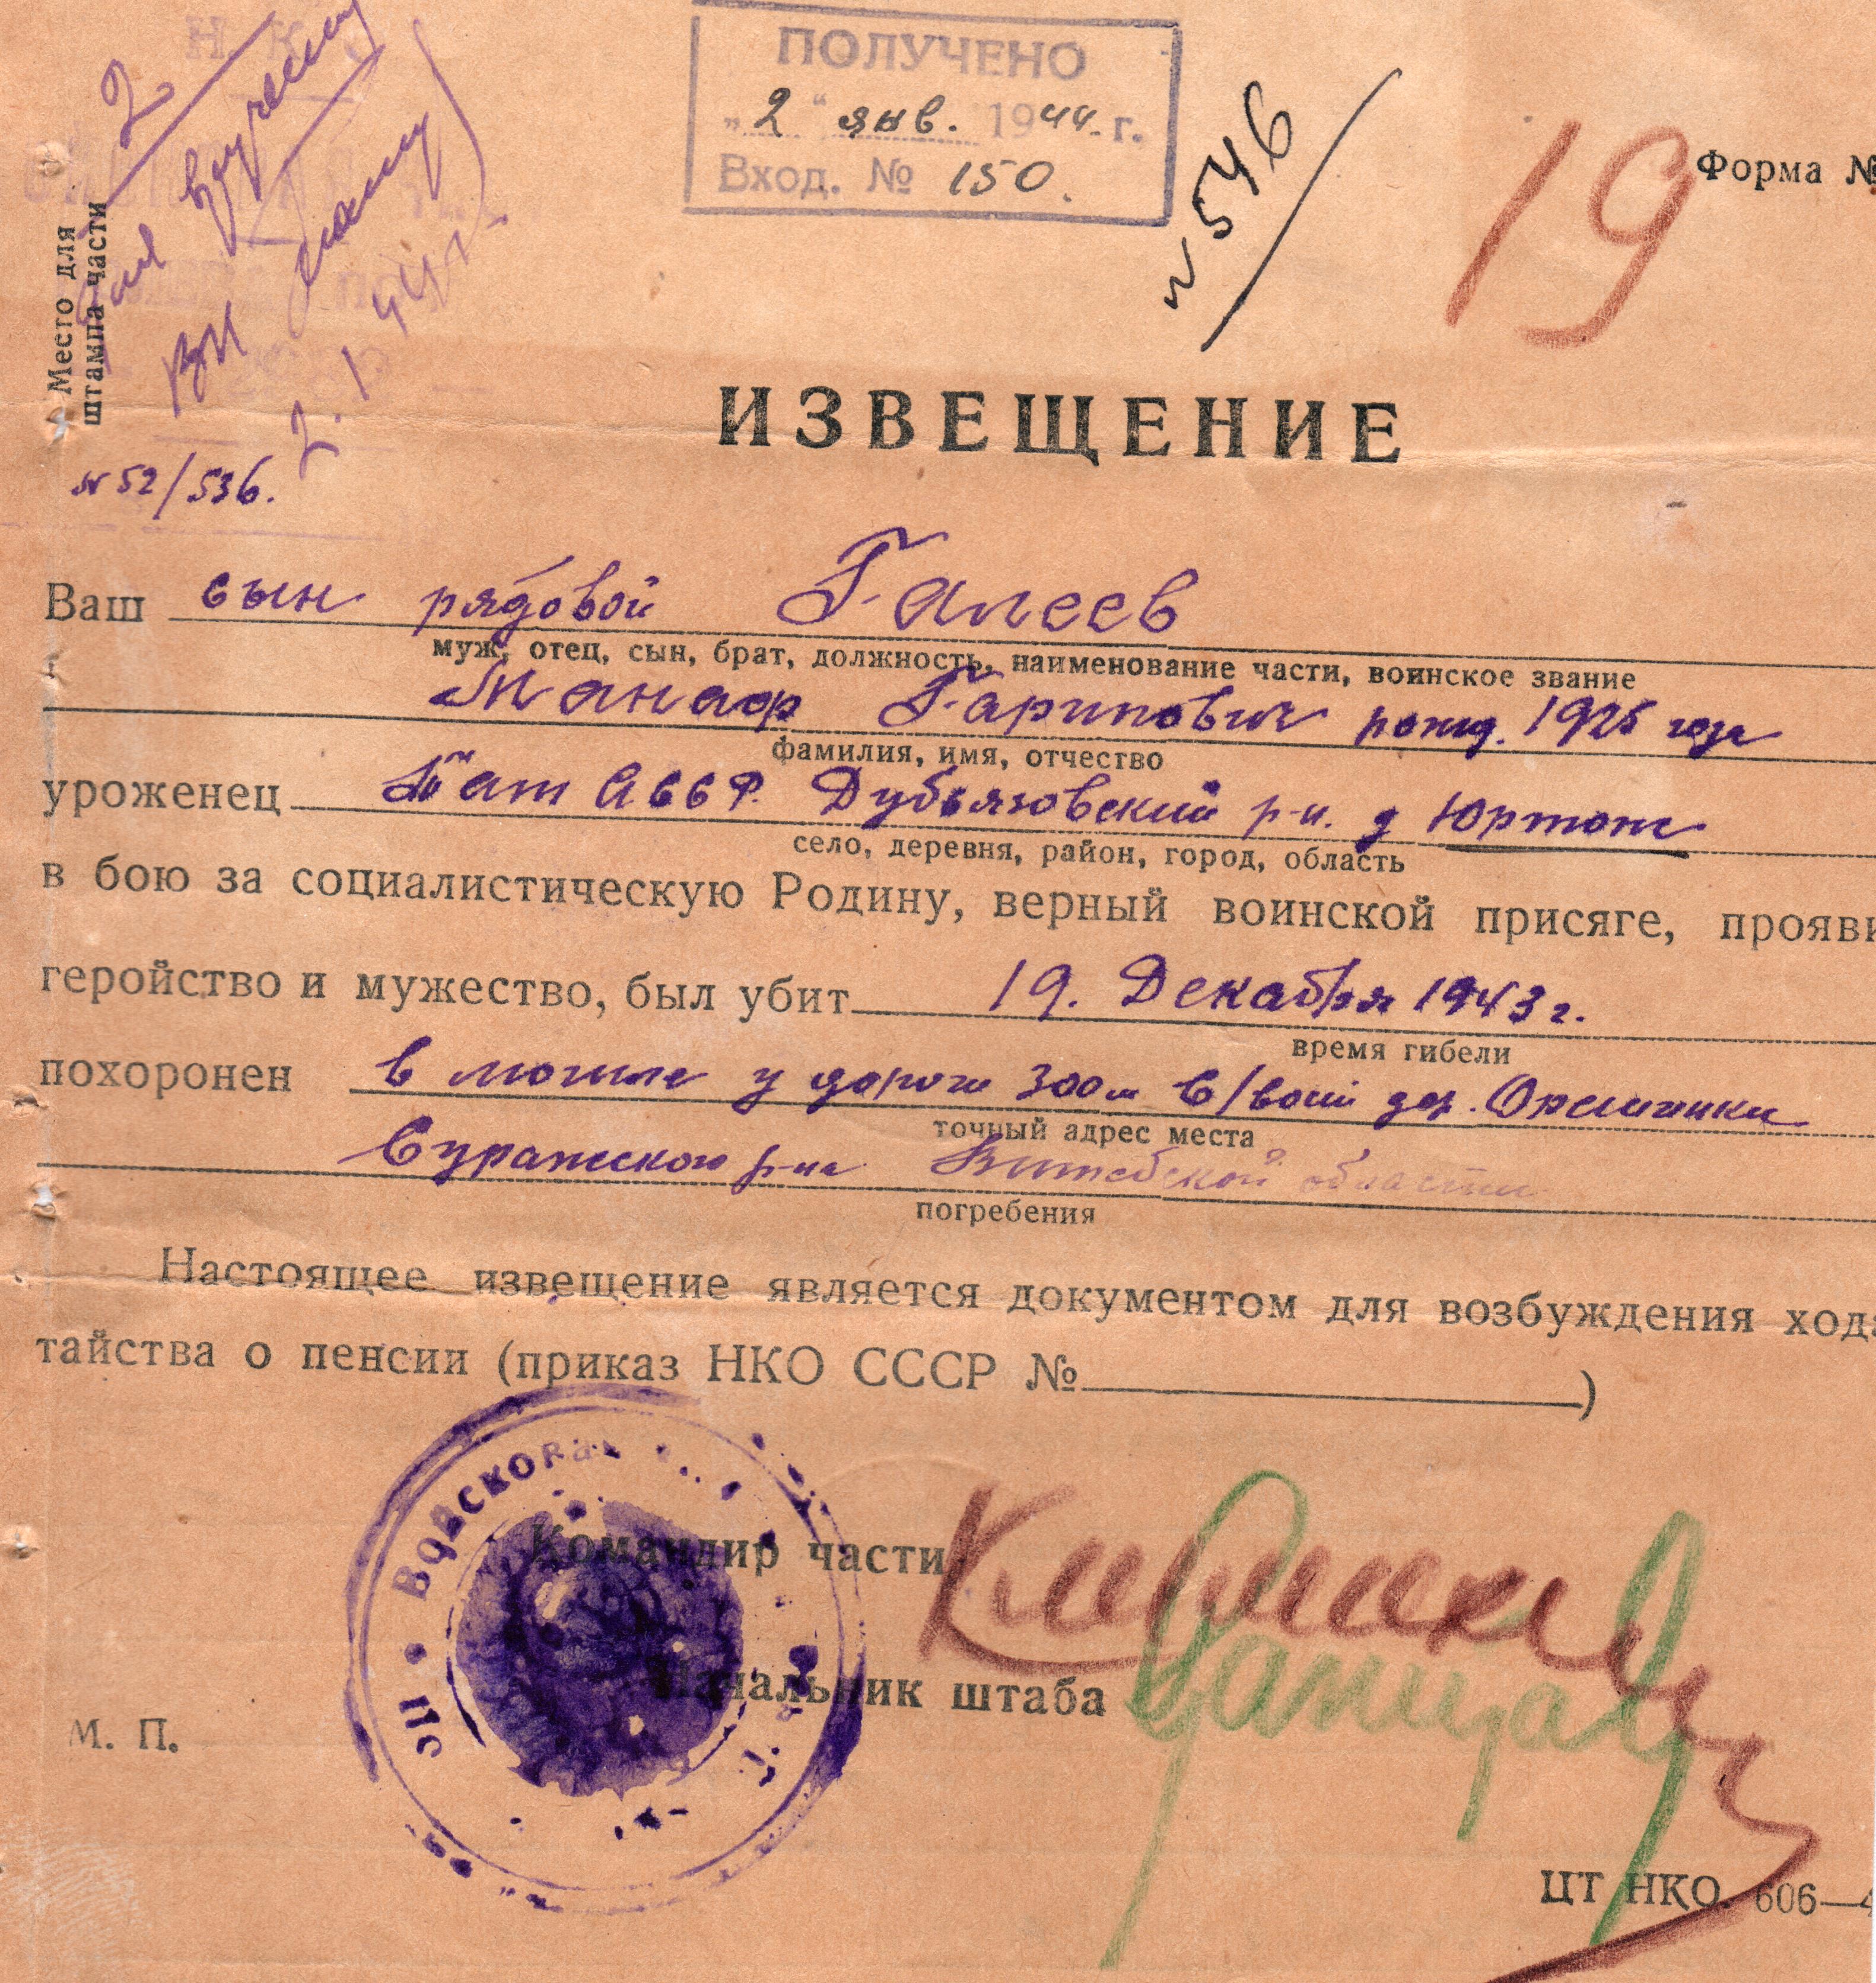 ПОЛУЧЕНО
„2“ янв. 1944 г.
Вход. № 150.
№ 546
19
Форма №
Место для
штампа части
2
вручении
2.1.44г.
№ 52/536.
ИЗВЕЩЕНИЕ
Ваш сын рядовой Галеев
муж, отец, сын, брат, должность, наименование части, воинское звание
Манаф Гарипович рожд. 1925 года
фамилия, имя, отчество
уроженец Тат АССР. Дубьязовский р-н. д Юртыш
село, деревня, район, город, область
в бою за социалистическую Родину, верный воинской присяге, прояви
геройство и мужество, был убит 19. Декабря 1943 г.
время гибели
похоронен в могиле у дороги 300 м в/вост дер. Орешники
точный адрес места
Суражского р-на Витебской области
погребения
Настоящее извещение является документом для возбуждения хода
тайства о пенсии (приказ НКО СССР № )
Войсковая
Командир части
Начальник штаба
М. П.
ЦТ НКО. 606—4